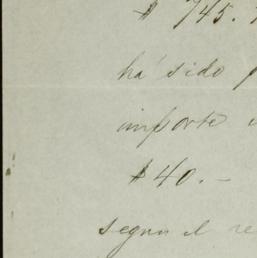 $ 745.
ha sido
importe
$40.-
segun el re